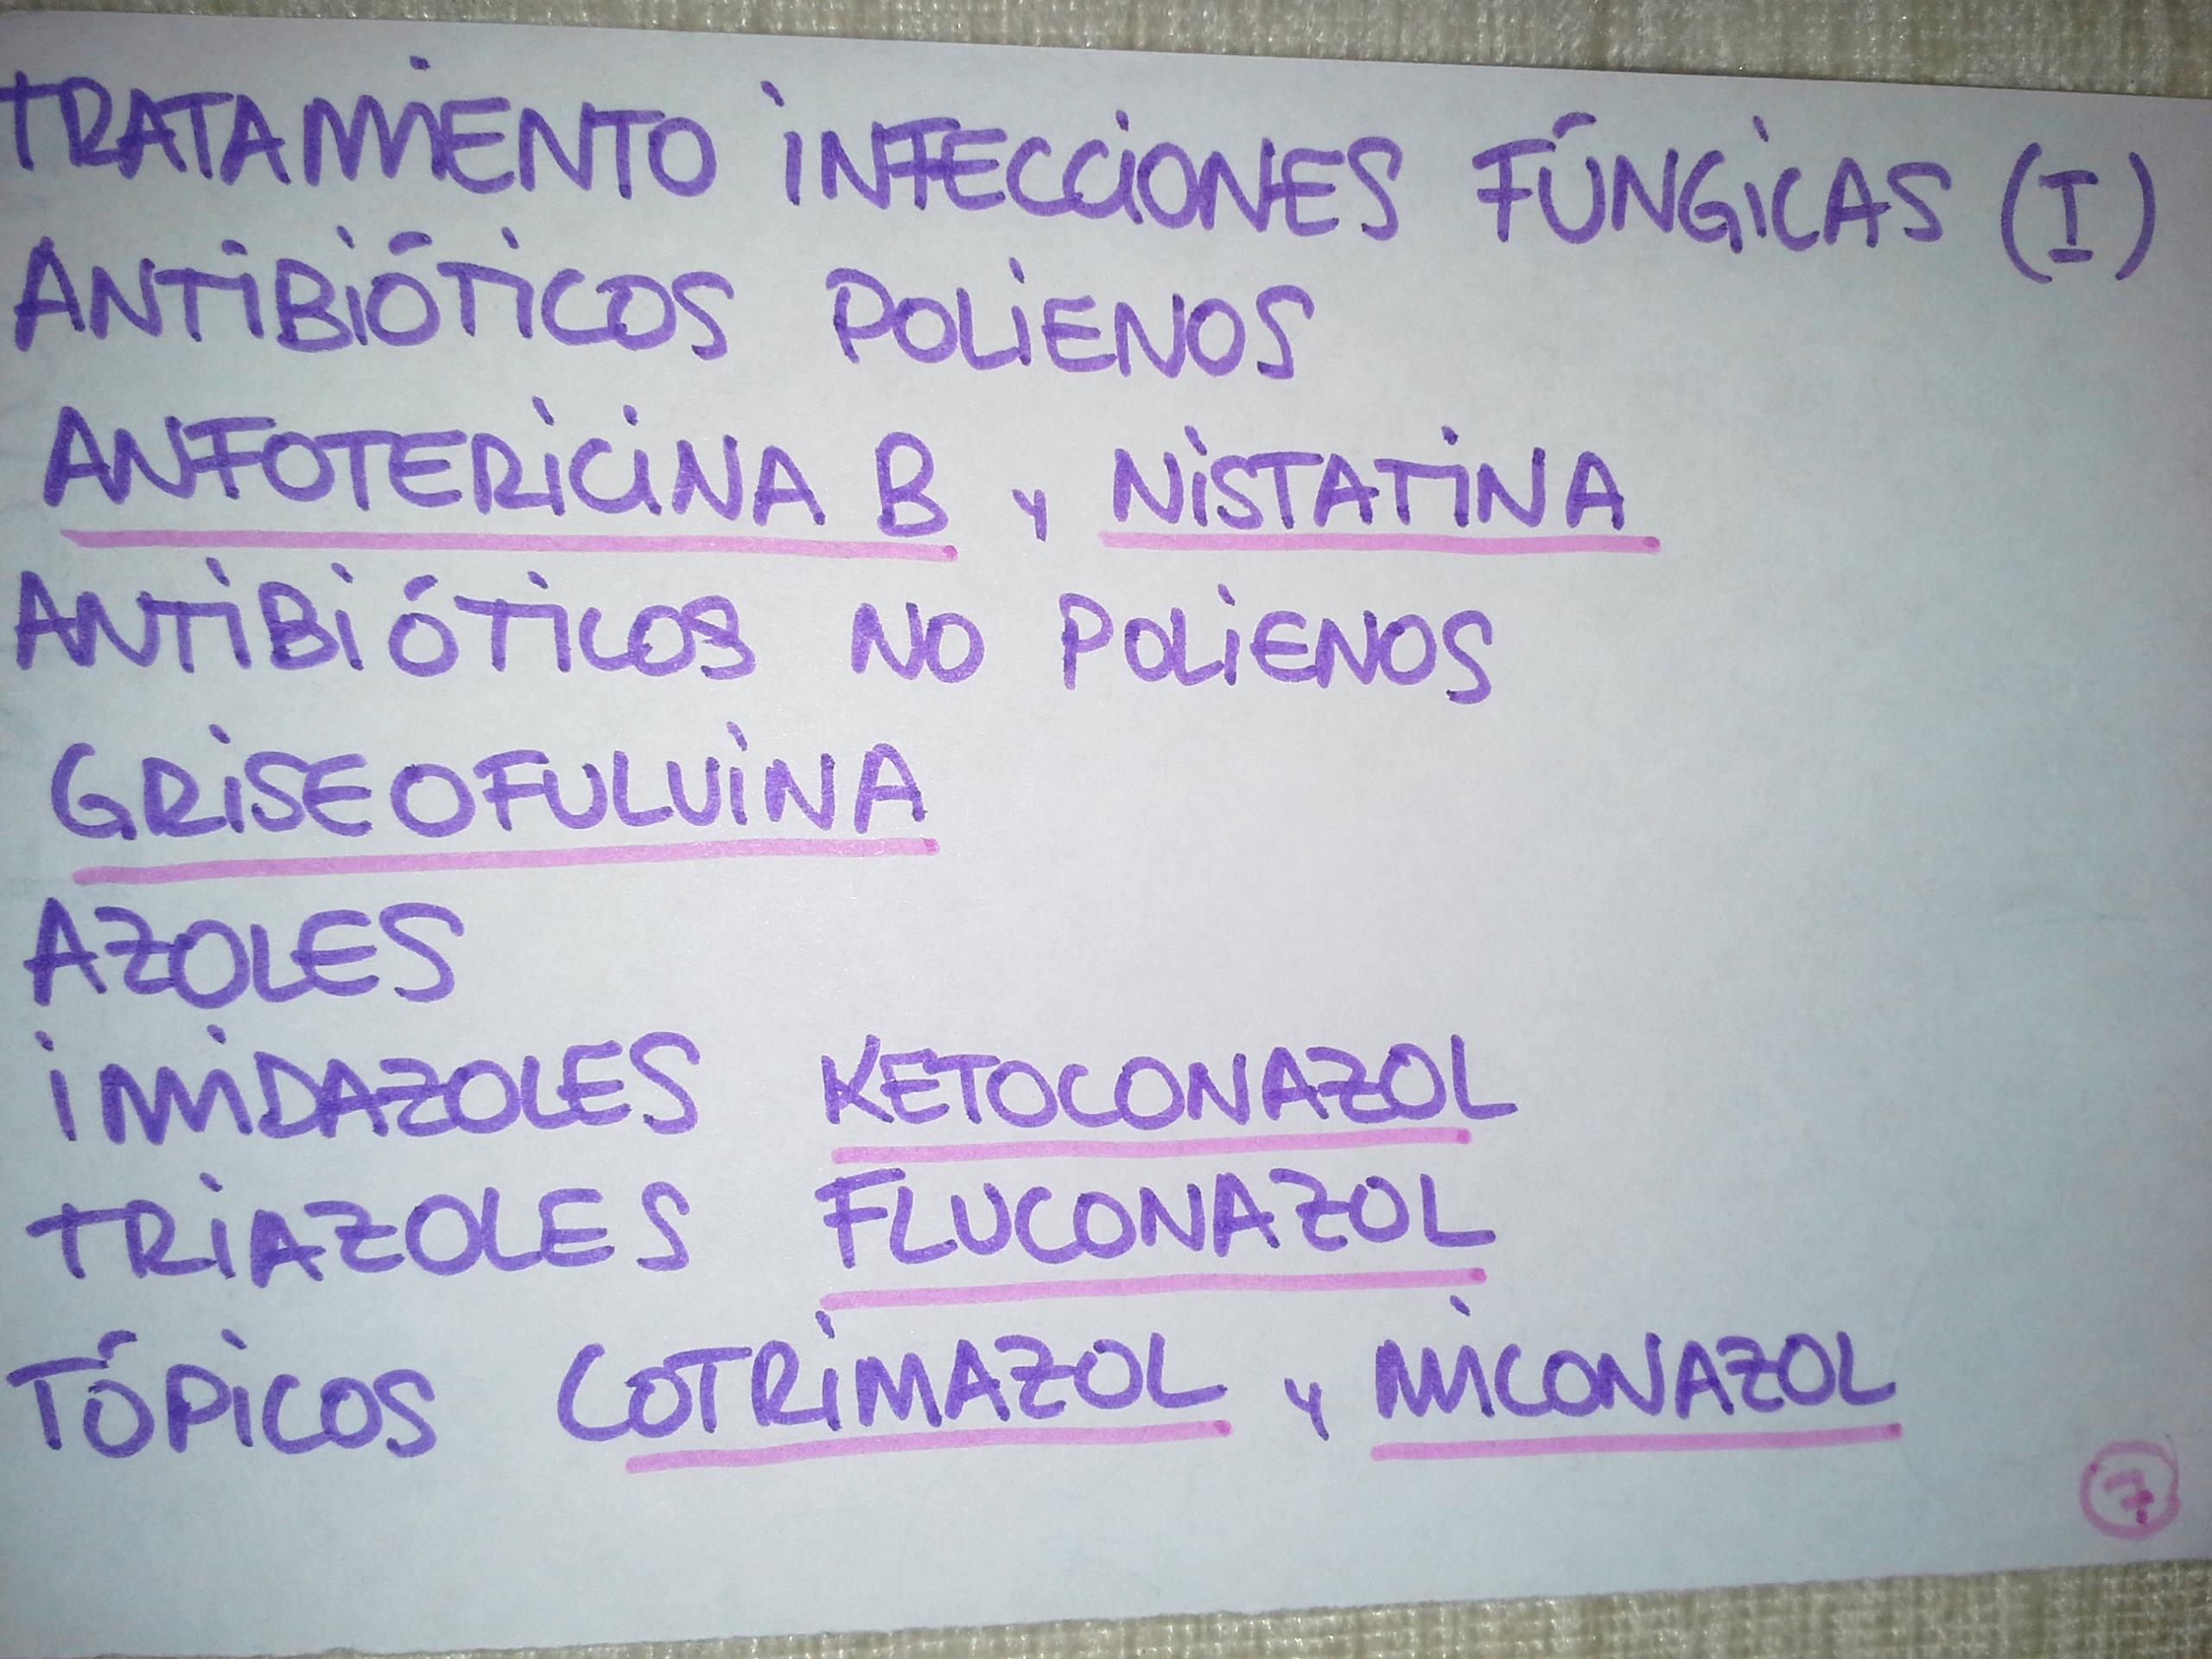 TRATAMIENTO INFECCIONES FÚNGICAS (I)
ANTIBIÓTICOS POLIENOS
ANFOTERICINA B y NISTATINA
ANTIBIÓTICOS NO POLIENOS
GRISEOFULVINA
AZOLES
IMIDAZOLES KETOCONAZOL
TRIAZOLES FLUCONAZOL
TÓPICOS COTRIMAZOL y MICONAZOL
7